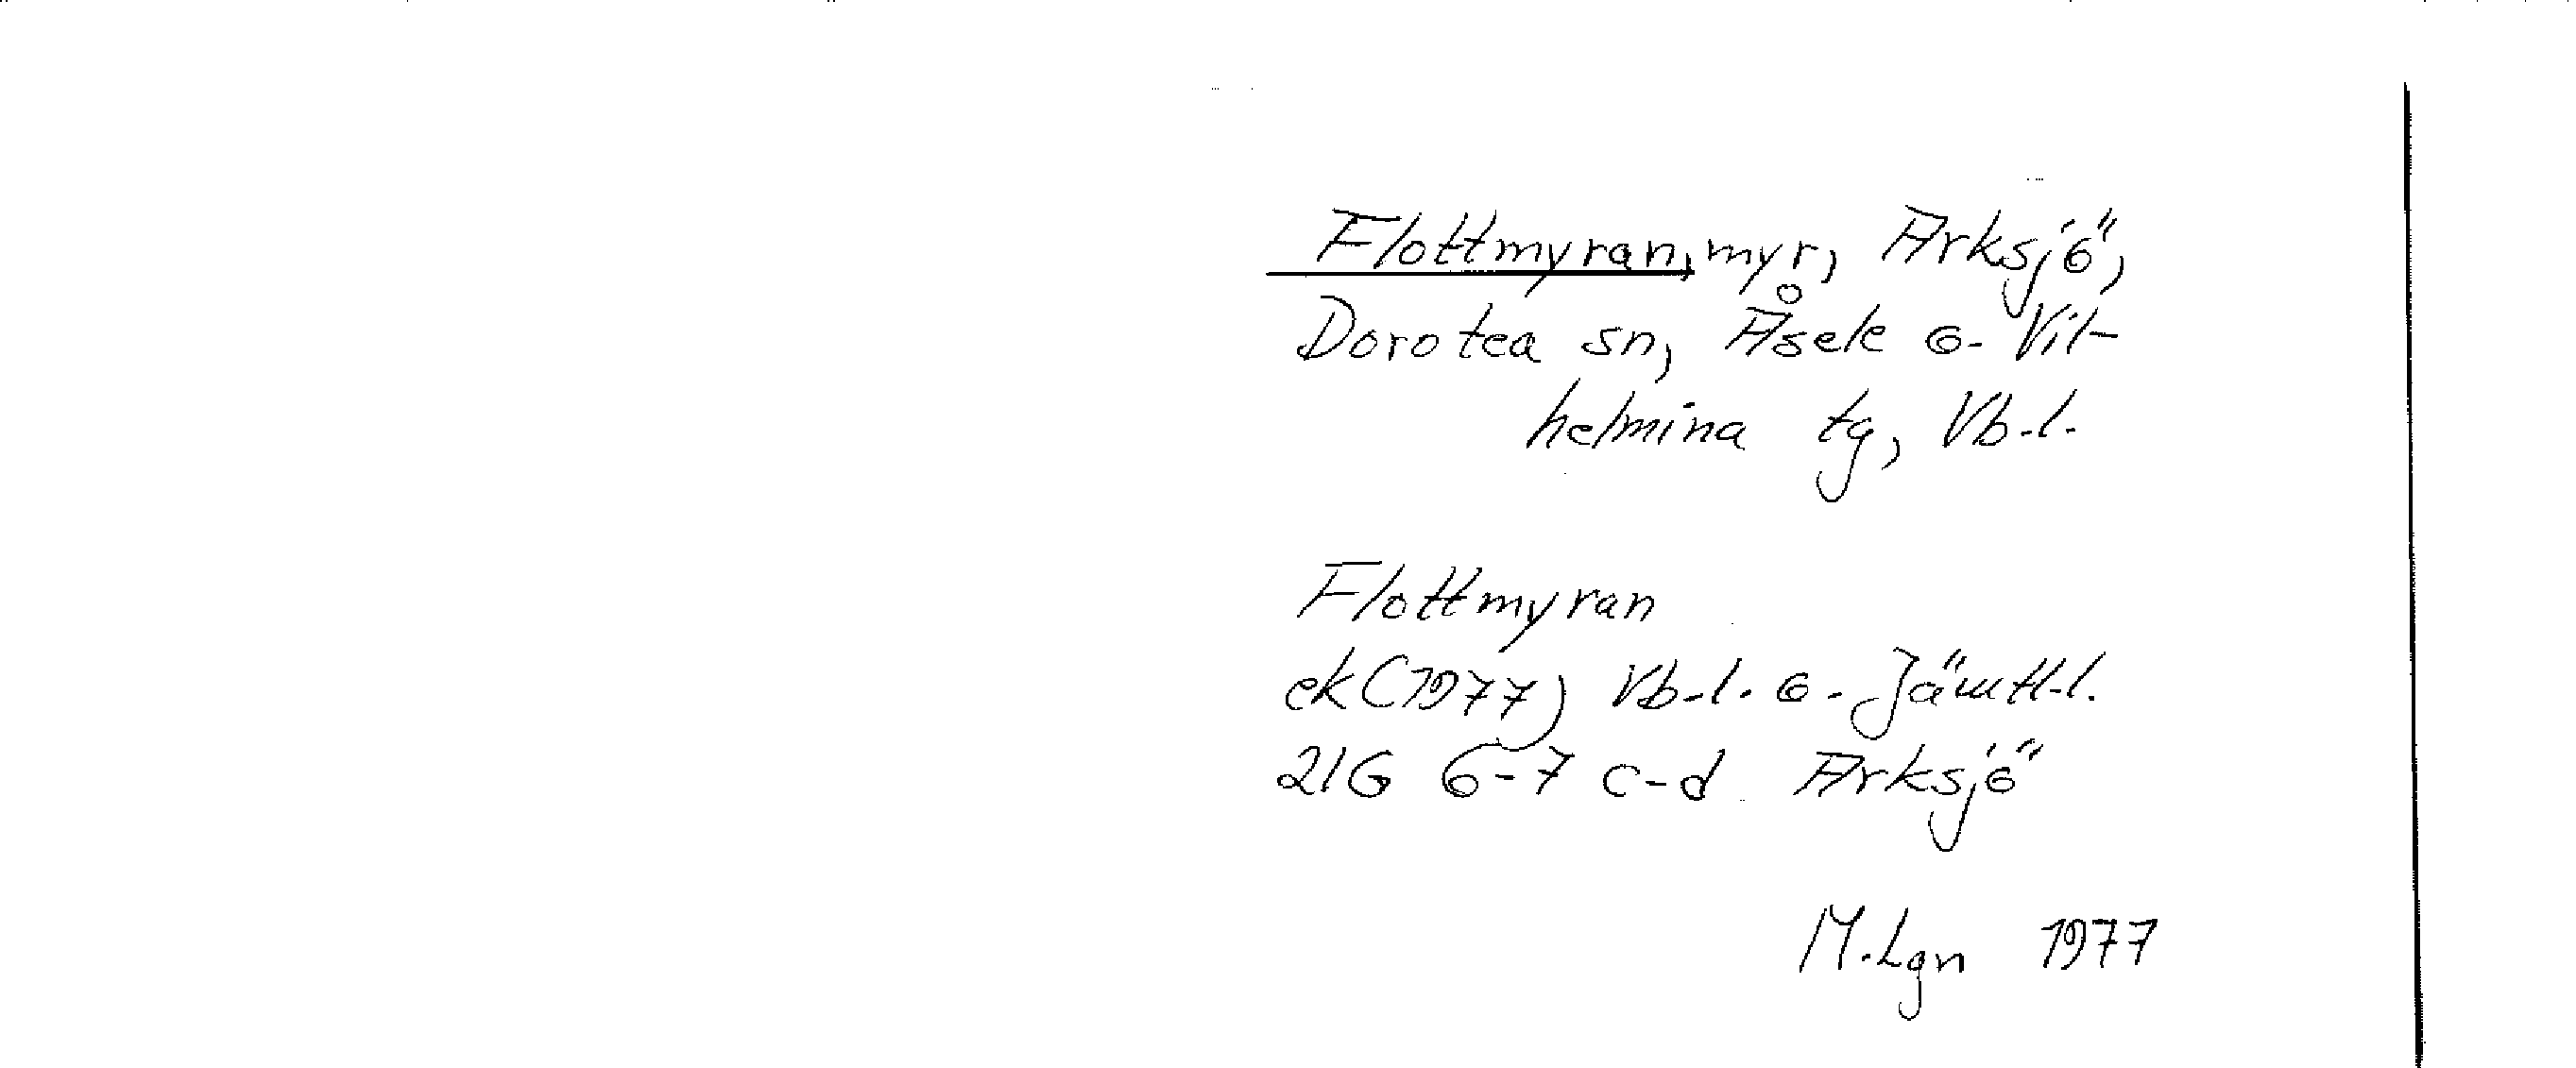 Flottmyran, myr, Arksjö,
Dorotea sn, Åsele o. Vil-
helmina tg, Vb.l.
Flottmyran
ek (1977) Vb.l. o. Jämtl.l.
21G 6-7 c-d Arksjö
M.Lgn 1977